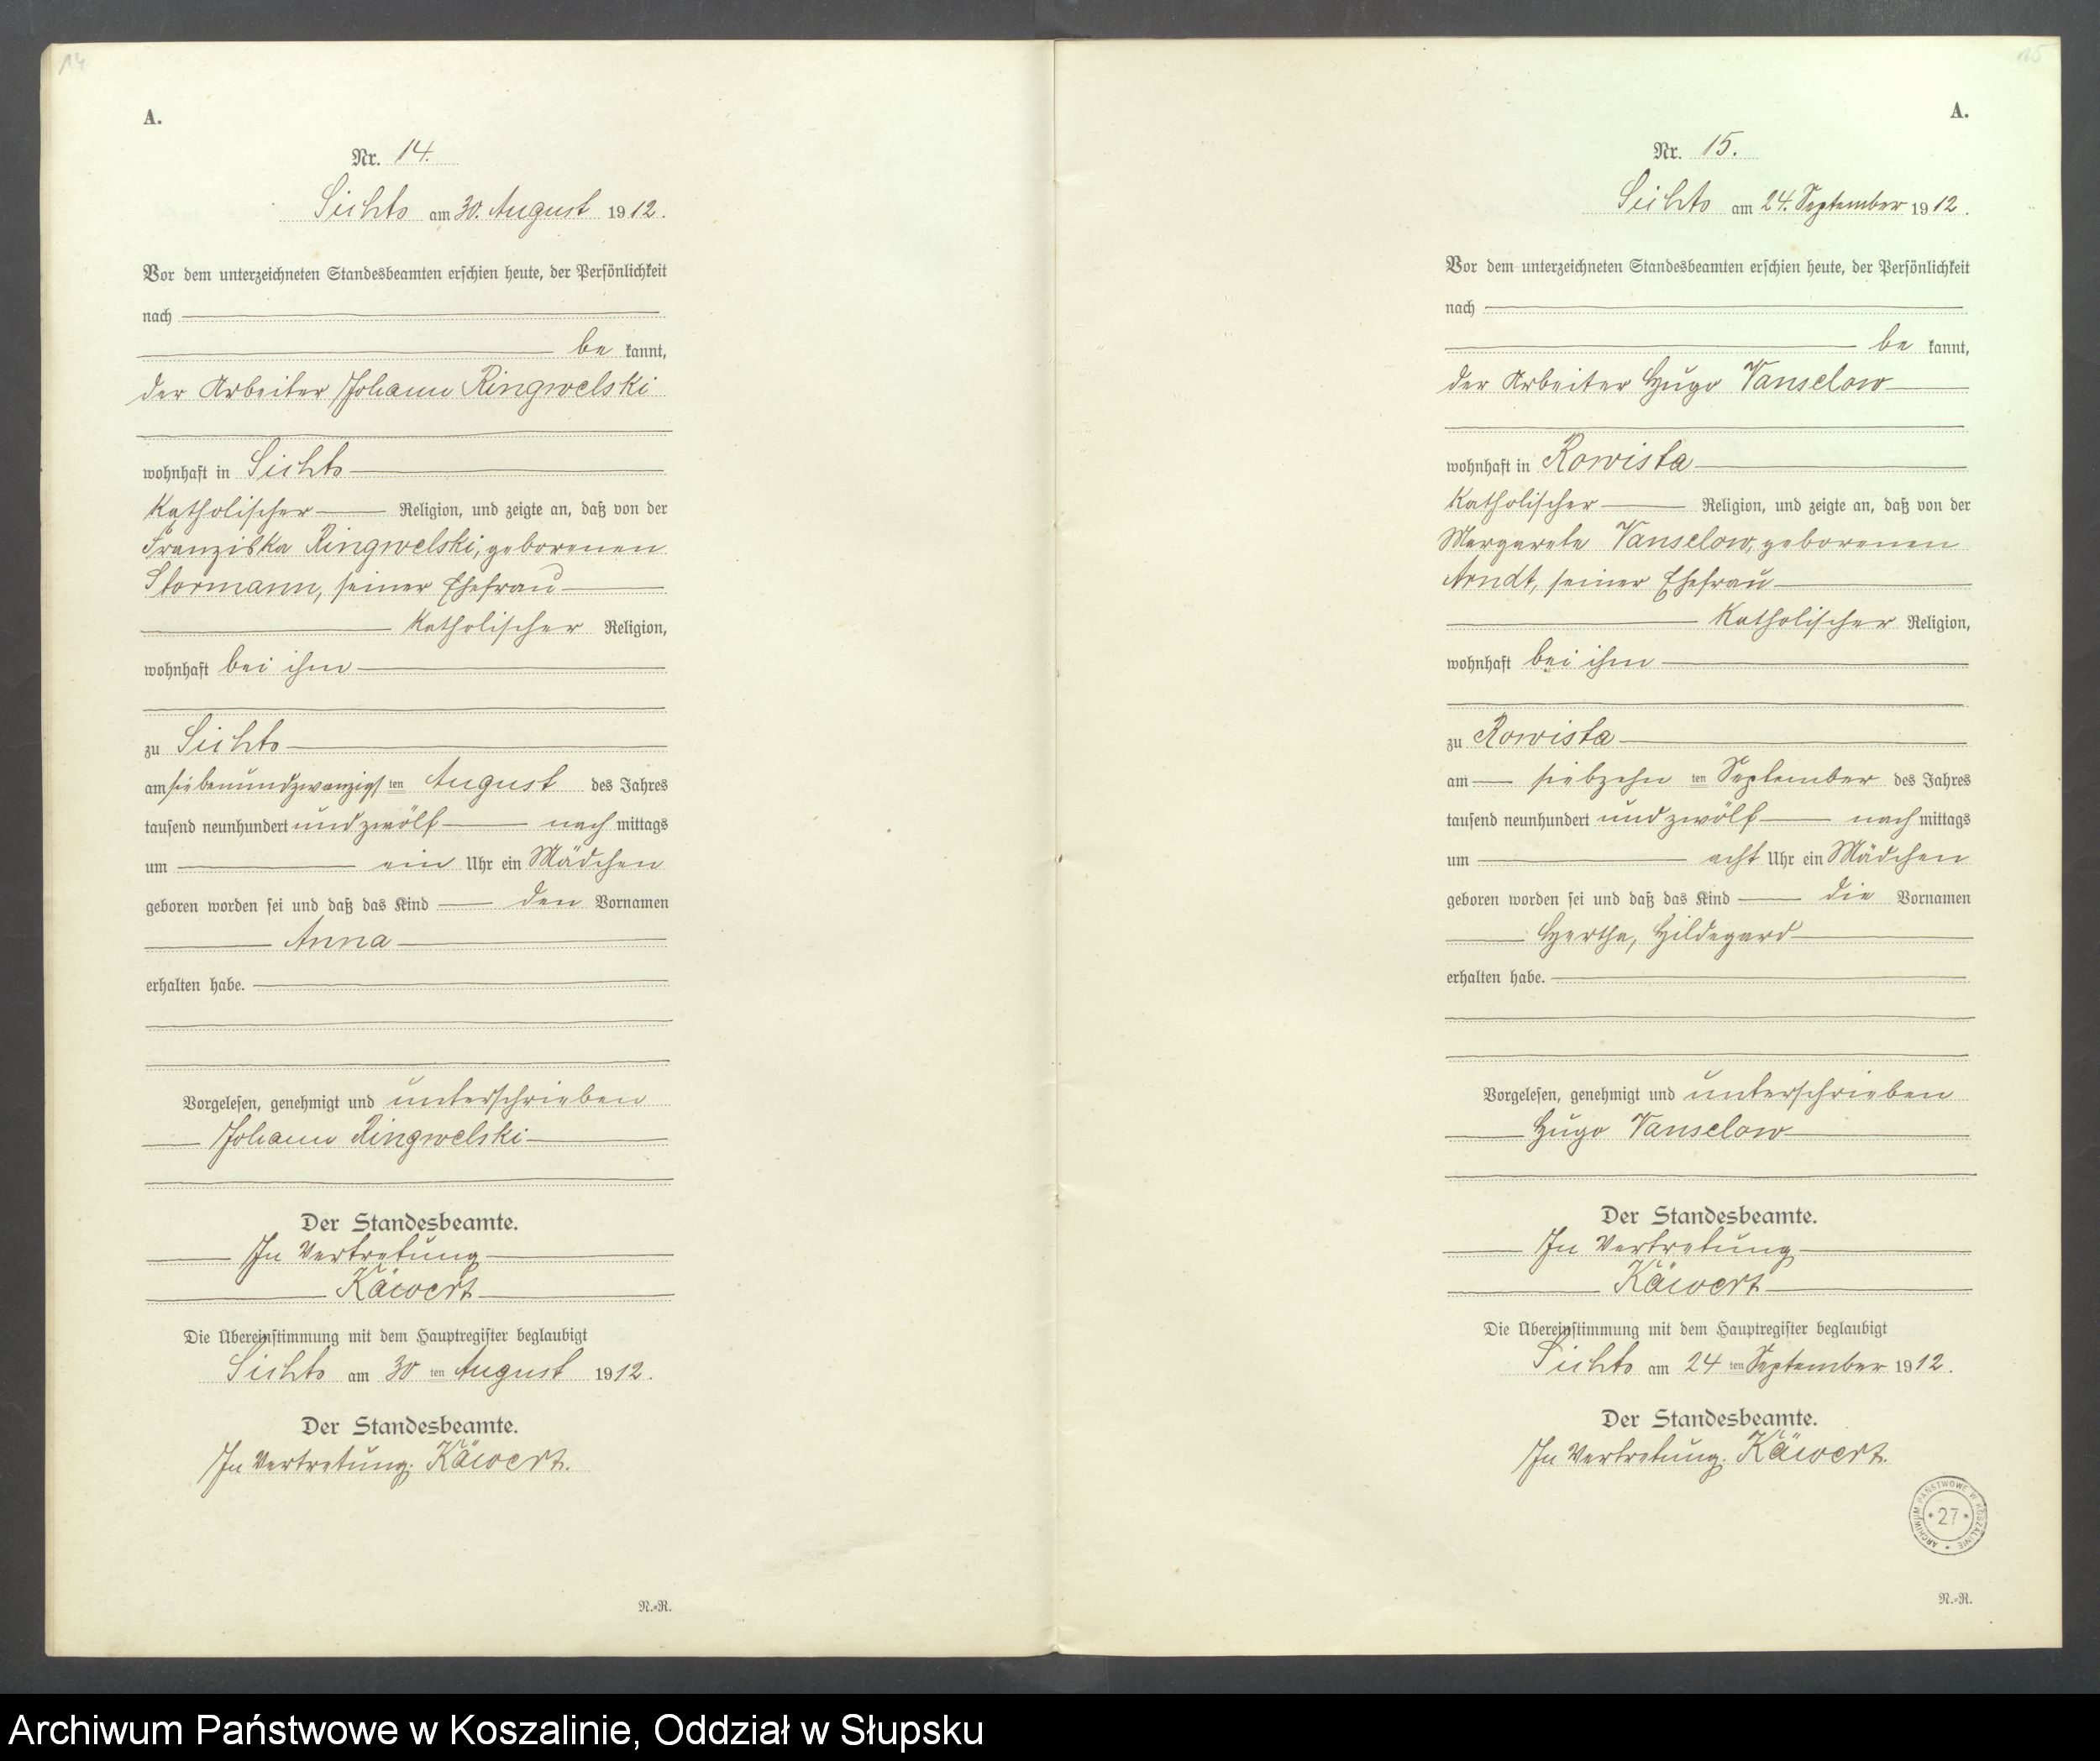 14
A.
Nr. 14.
Sichts am 30. August 1912.
Vor dem unterzeichneten Standesbeamten erschien heute, der Persönlichkeit
nach
be kannt,
der Arbeiter Johann Ringwelski
wohnhaft in Sichts
katholischer Religion, und zeigte an, daß von der
Franziska Ringwelski, geborenen
Stormann, seiner Ehefrau
katholischer Religion,
wohnhaft bei ihm
zu Sichts
am siebenundzwanzigs ten August des Jahres
tausend neunhundert und zwölf nach mittags
um ein Uhr ein Mädchen
geboren worden sei und daß das Kind den Vornamen
Anna
erhalten habe.
Vorgelesen, genehmigt und unterschrieben
Johann Ringwelski
Der Standesbeamte.
In Vertretung
Käwert
Die Übereinstimmung mit dem Hauptregister beglaubigt
Sichts am 30 ten August 1912.
Der Standesbeamte.
In Vertretung. Käwert.
N.=R.
15
A.
Nr. 15.
Sichts am 24. September 1912.
Vor dem unterzeichneten Standesbeamten erschien heute, der Persönlichkeit
nach
be kannt,
der Arbeiter Hugo Vanselow
wohnhaft in Rowista
katholischer Religion, und zeigte an, daß von der
Margarete Vanselow, geborenen
Arndt, seiner Ehefrau
katholischer Religion,
wohnhaft bei ihm
zu Rowista
am siebzehn ten September des Jahres
tausend neunhundert und zwölf nach mittags
um acht Uhr ein Mädchen
geboren worden sei und daß das Kind die Vornamen
Hertha, Hildegard
erhalten habe.
Vorgelesen, genehmigt und unterschrieben
Hugo Vanselow
Der Standesbeamte.
In Vertretung
Käwert
Die Übereinstimmung mit dem Hauptregister beglaubigt
Sichts am 24 ten September 1912.
Der Standesbeamte.
In Vertretung. Käwert.
ARCHIWUM PAŃSTWOWE W KOSZALINIE
* 27 *
N.=R.
Archiwum Państwowe w Koszalinie, Oddział w Słupsku